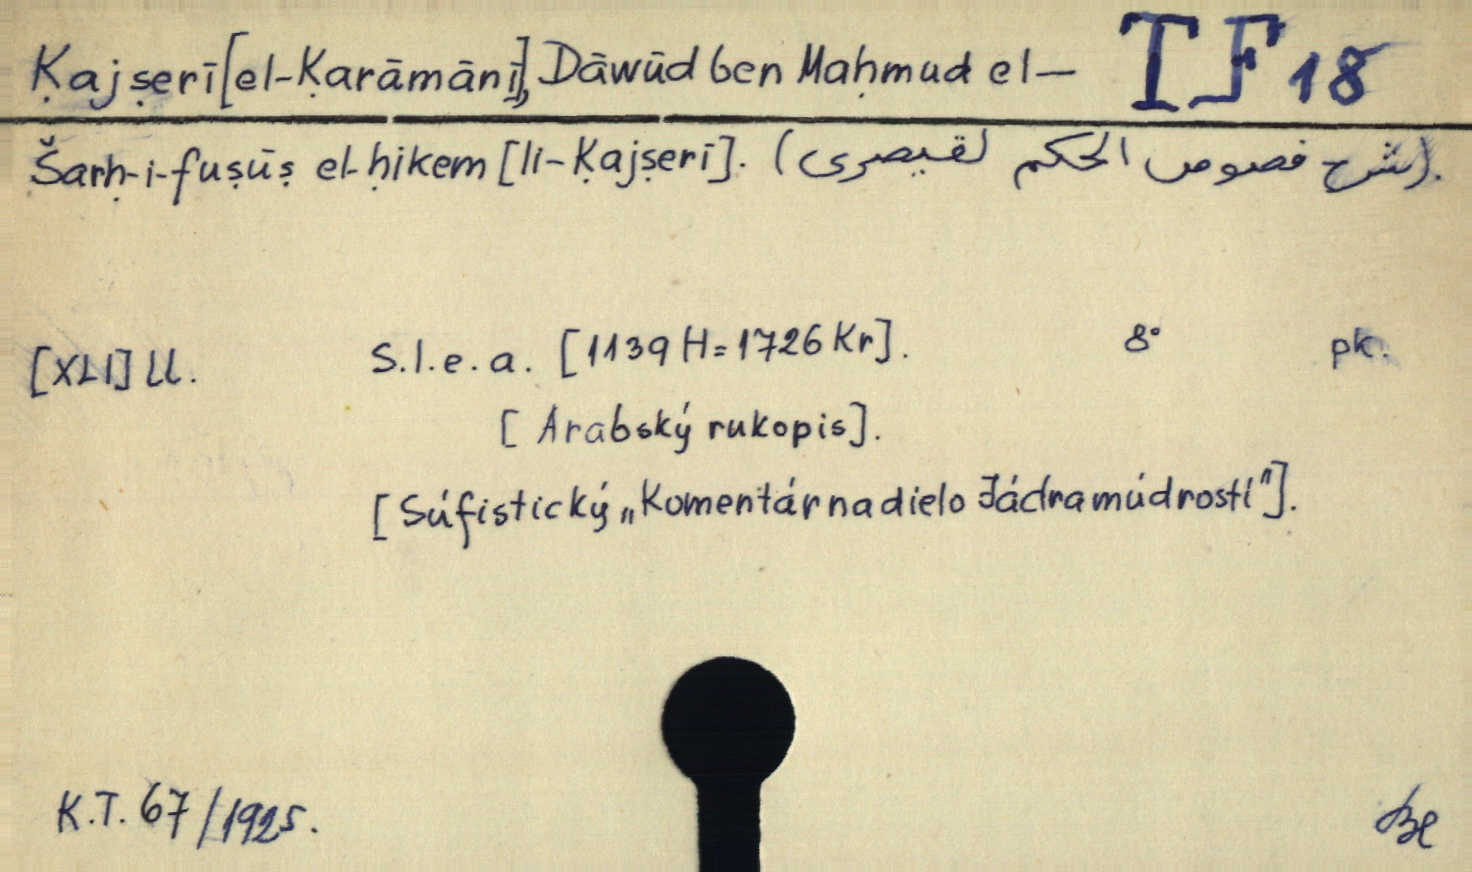 Ḳajṣerī [el-Ḳarāmānī], Dāwūd ben Maḥmud el— TF 18
Šarḥ-i-fuṣūṣ el-ḥikem [li-Ḳajṣerī]. (شرح فصوص الحكم لقيصرى).
[XLI] ll. S.l.e.a. [1139 H = 1726 Kr]. 8° pk.
[Arabský rukopis].
[Súfistický „Komentár na dielo Jádra múdrostí"].
K.T. 67/1925.